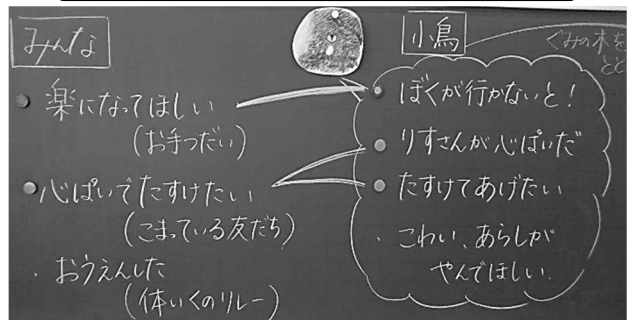 みんな
楽になってほしい
(お手つだい)
心ぱいでたすけたい
(こまっている友だち)
・おうえんした
(体いくのリレー)
小鳥
ぐみの木を
とど
ぼくが行かないと!
りすさんが心ぱいだ
たすけてあげたい
・こわい、あらしが
やんでほしい。